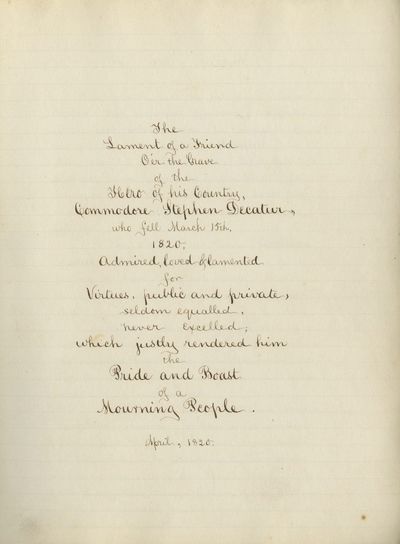 The
Lament of a Friend
O'er the Grave
of the
Hero of his Country,
Commodore Stephen Decatur,
who fell March 15th,
1820;
Admired, loved & lamented
for
Virtues, public and private,
seldom equalled,
never excelled;
which justly rendered him
the
Pride and Boast
of a
Mourning People.
April, 1820.